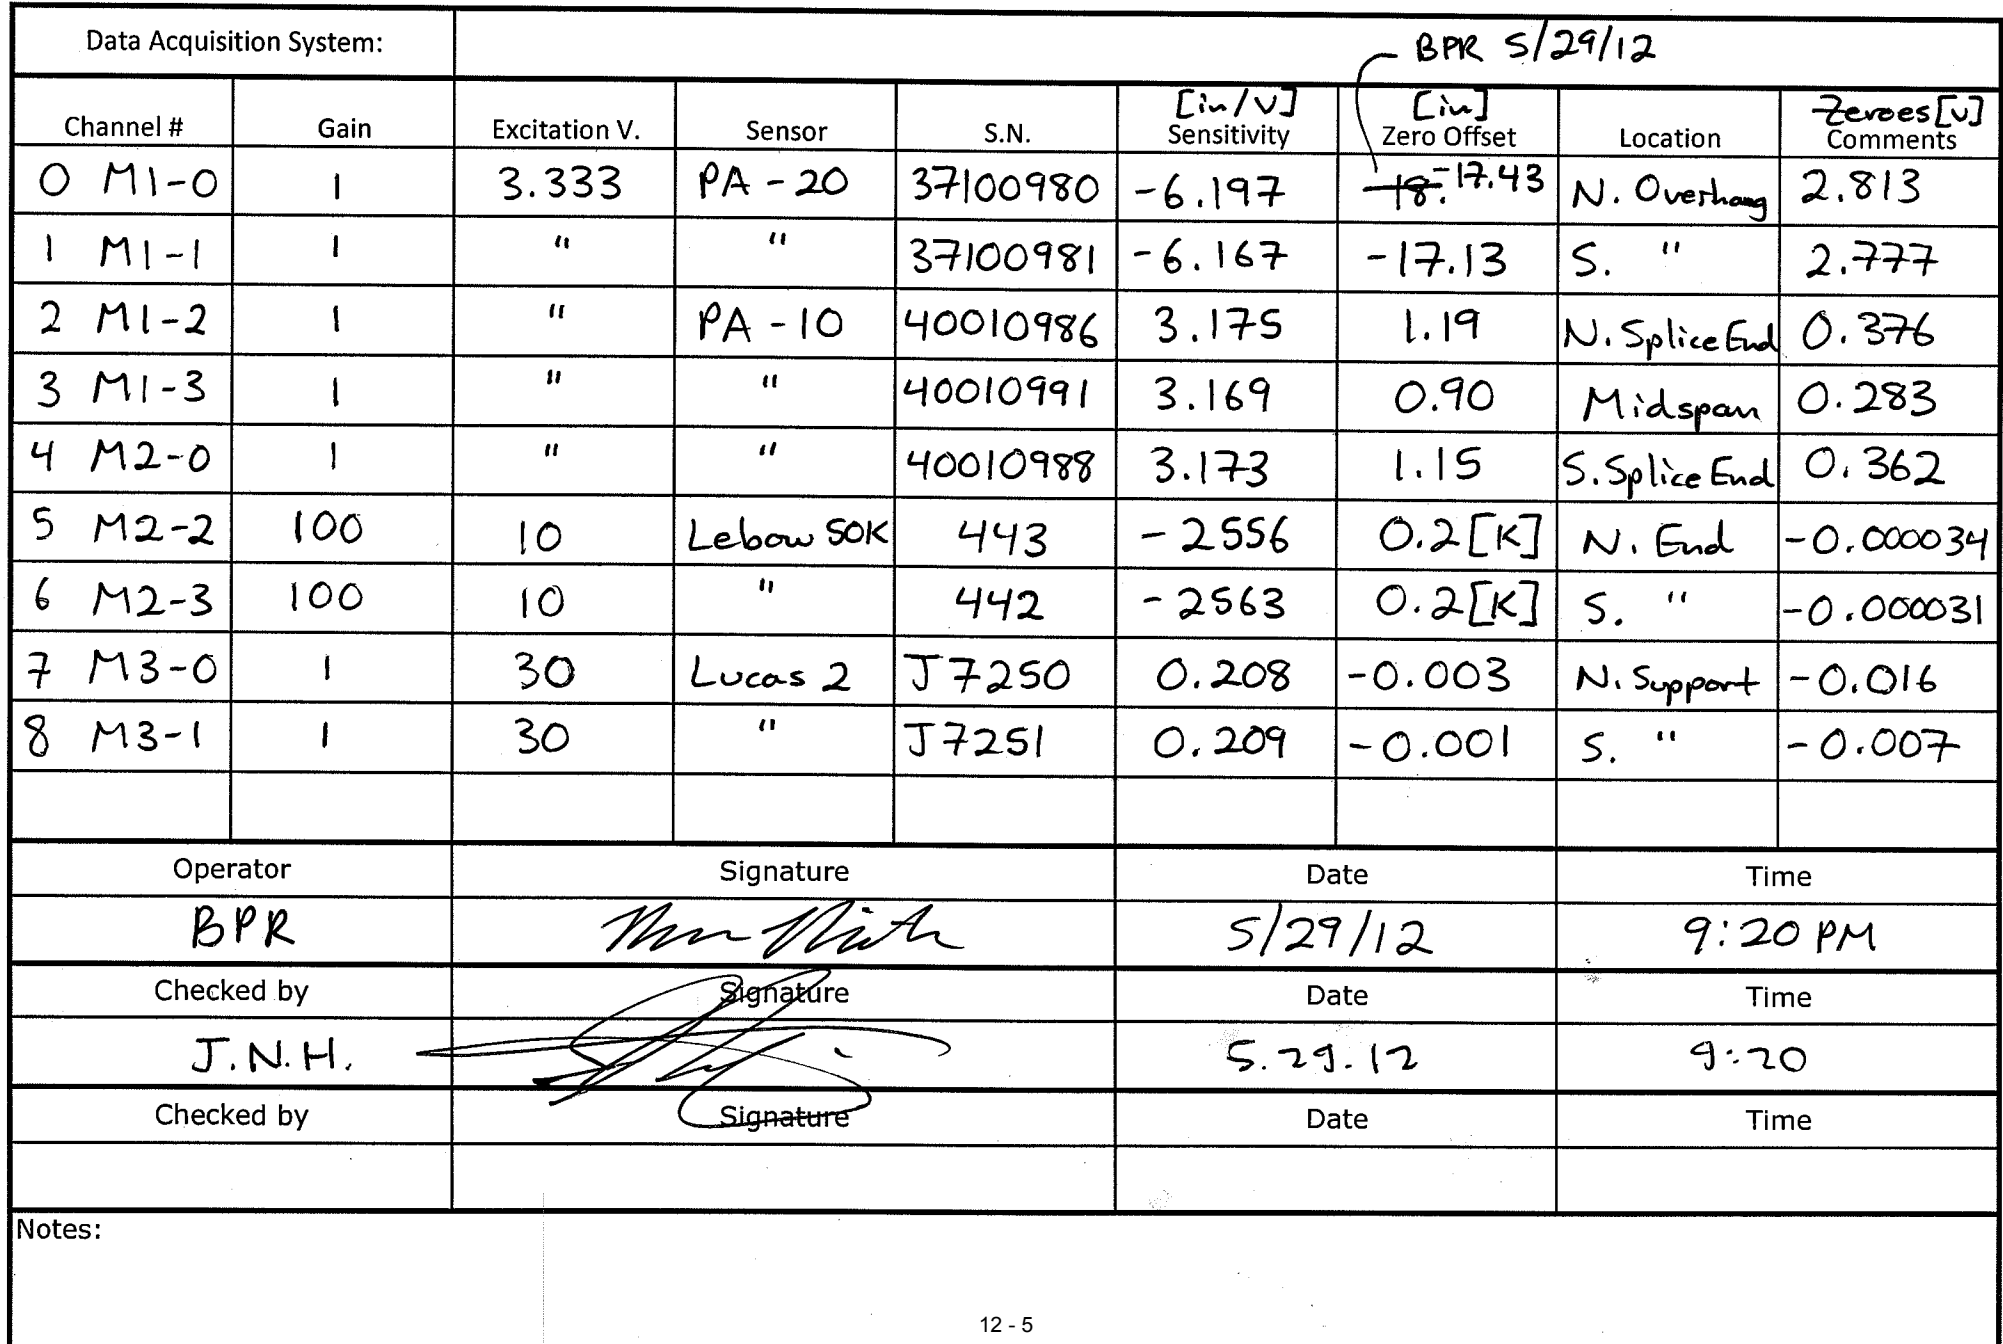 Data Acquisition System: BPR 5/29/12
Channel # Gain Excitation V. Sensor S.N. [in/V] Sensitivity [in] Zero Offset Location Zeroes [V] Comments
0 M1-0 1 3.333 PA-20 37100980 -6.197 -18. -17.43 N. Overhang 2.813
1 M1-1 1 " " 37100981 -6.167 -17.13 S. " 2.777
2 M1-2 1 " PA-10 40010986 3.175 1.19 N. Splice End 0.376
3 M1-3 1 " " 40010991 3.169 0.90 Midspan 0.283
4 M2-0 1 " " 40010988 3.173 1.15 S. Splice End 0.362
5 M2-2 100 10 Lebow 50K 443 -2556 0.2 [K] N. End -0.000034
6 M2-3 100 10 " 442 -2563 0.2 [K] S. " -0.000031
7 M3-0 1 30 Lucas 2 J7250 0.208 -0.003 N. Support -0.016
8 M3-1 1 30 " J7251 0.209 -0.001 S. " -0.007
Operator Signature Date Time
BPR 5/29/12 9:20 PM
Checked by Signature Date Time
J.N.H. 5.29.12 9:20
Checked by Signature Date Time
Notes:
12 - 5